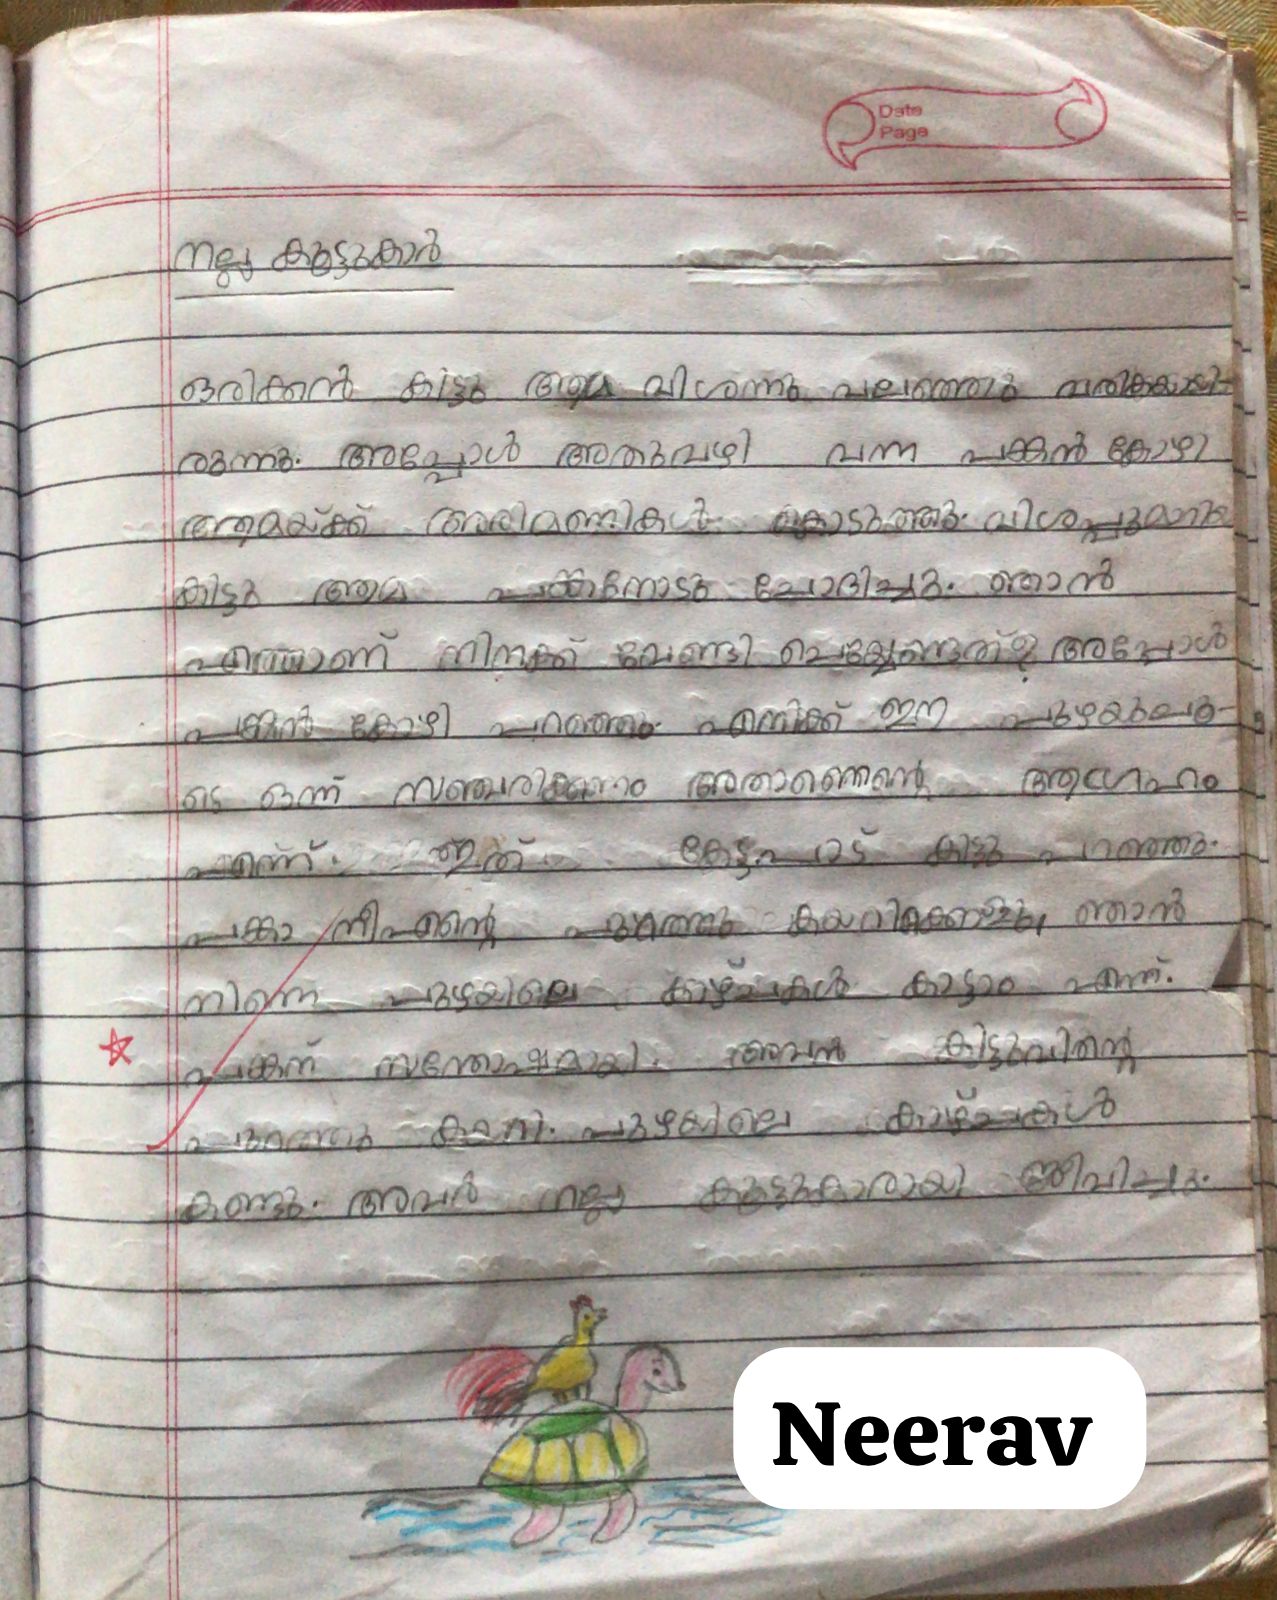 Date
Page
നല്ല കൂട്ടുകാർ
ഒരിക്കൽ കിട്ടു ആമ വിശന്നു വലഞ്ഞു വരികയായി-
രുന്നു. അപ്പോൾ അതുവഴി വന്ന പക്കൻ കോഴി
ആമയ്ക്ക് അരിമണികൾ കൊടുത്തു. വിശപ്പുമാറിയ
കിട്ടു ആമ പക്കനോടു ചോദിച്ചു. ഞാൻ
എന്താണ് നിനക്ക് വേണ്ടി ചെയ്യേണ്ടത്? അപ്പോൾ
പക്കൻ കോഴി പറഞ്ഞു. എനിക്ക് ഈ പുഴയിലൂ-
ടെ ഒന്ന് സഞ്ചരിക്കണം അതാണെന്റെ ആഗ്രഹം
എന്ന്. ഇത് കേട്ടപാട് കിട്ടു പറഞ്ഞു.
പക്കാ നീ എന്റെ പുറത്തു കയറിക്കൊള്ളു, ഞാൻ
നിന്നെ പുഴയിലെ കാഴ്ചകൾ കാട്ടാം എന്ന്.
പക്കന് സന്തോഷമായി. അവൻ കിട്ടുവിന്റെ
പുറത്തു കയറി. പുഴയിലെ കാഴ്ചകൾ
കണ്ടു. അവർ നല്ല കൂട്ടുകാരായി ജീവിച്ചു.
Neerav